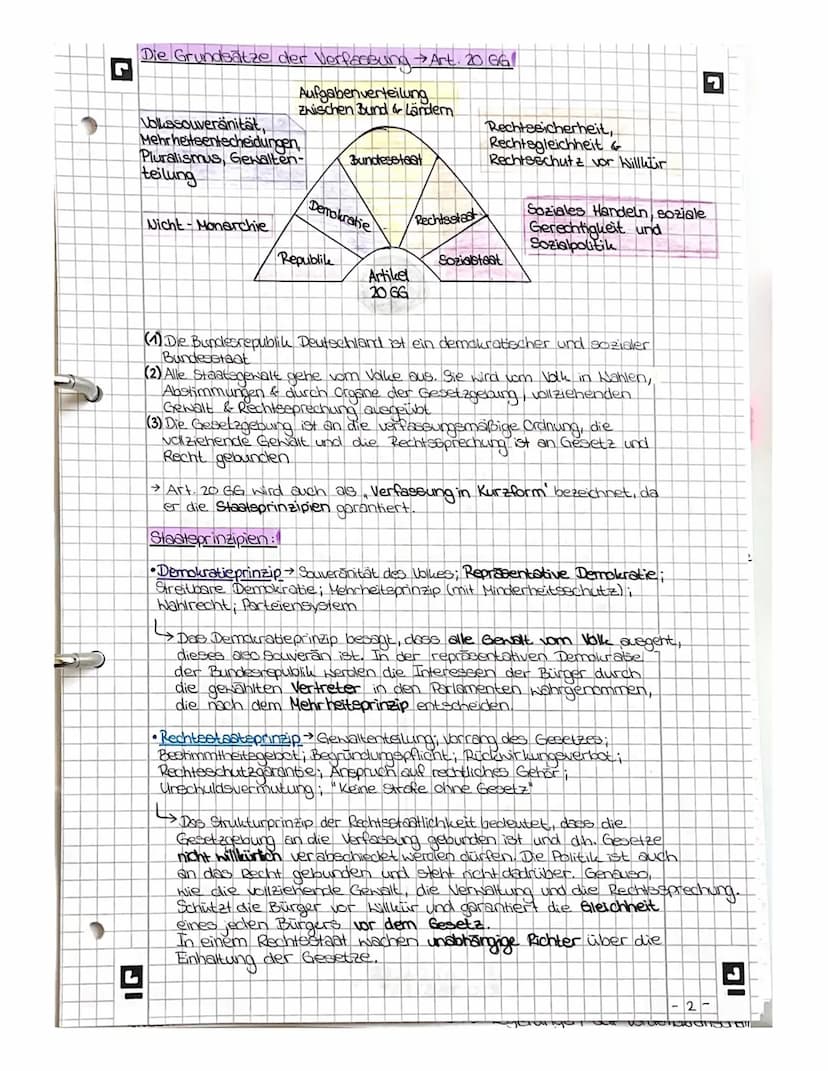 Die Grundsätze der Verfassung → Art. 20 GG!
Aufgabenverteilung
zwischen Bund & Ländern
Volkssouveränität,
Mehrheitsentscheidungen,
Pluralismus, Gewalten-
teilung
Rechtssicherheit,
Rechtsgleichheit &
Rechtsschutz vor Willkür
Bundesstaat
Demokratie
Rechtsstaat
Nicht-Monarchie
Soziales Handeln, soziale
Gerechtigkeit und
Sozialpolitik
Republik
Sozialstaat
Artikel
20 GG
(1) Die Bundesrepublik Deutschland ist ein demokratischer und sozialer
Bundesstaat
(2) Alle Staatsgewalt gehe vom Volke aus. Sie wird vom Volk in Wahlen,
Abstimmungen & durch Organe der Gesetzgebung, vollziehenden
Gewalt & Rechtssprechung ausgeübt
(3) Die Gesetzgebung ist an die verfassungsmäßige Ordnung, die
vollziehende Gewalt und die Rechtssprechung ist an Gesetz und
Recht gebunden
→ Art. 20 GG wird auch als „Verfassung in Kurzform' bezeichnet, da
er die Staatsprinzipien garantiert.
Staatsprinzipien:!
• Demokratieprinzip → Souveränität des Volkes; Repräsentative Demokratie;
Streitbare Demokratie; Mehrheitsprinzip (mit Minderheitsschutz);
Wahlrecht; Parteiensystem
↳ Das Demokratieprinzip besagt, dass alle Gewalt vom Volk ausgeht,
dieses also Souverän ist. In der repräsentativen Demokratie
der Bundesrepublik werden die Interessen der Bürger durch
die gewählten Vertreter in den Parlamenten wahrgenommen,
die nach dem Mehrheitsprinzip entscheiden.
• Rechtsstaatsprinzip → Gewaltenteilung; Vorrang des Gesetzes;
Bestimmtheitsgebot; Begründungspflicht; Rückwirkungsverbot;
Rechtsschutzgarantie; Anspruch auf rechtliches Gehör;
Unschuldsvermutung; "Keine Strafe ohne Gesetz"
↳ Das Strukturprinzip der Rechtsstaatlichkeit bedeutet, dass die
Gesetzgebung an die Verfassung gebunden ist und dh. Gesetze
nicht willkürlich verabschiedet werden dürfen. Die Politik ist auch
an das Recht gebunden und steht nicht dadrüber. Genauso,
wie die vollziehende Gewalt, die Verwaltung und die Rechtssprechung.
Schützt die Bürger vor Willkür und garantiert die Gleichheit
eines jeden Bürgers vor dem Gesetz.
In einem Rechtsstaat wachen unabhängige Richter über die
Einhaltung der Gesetze.
- 2 -